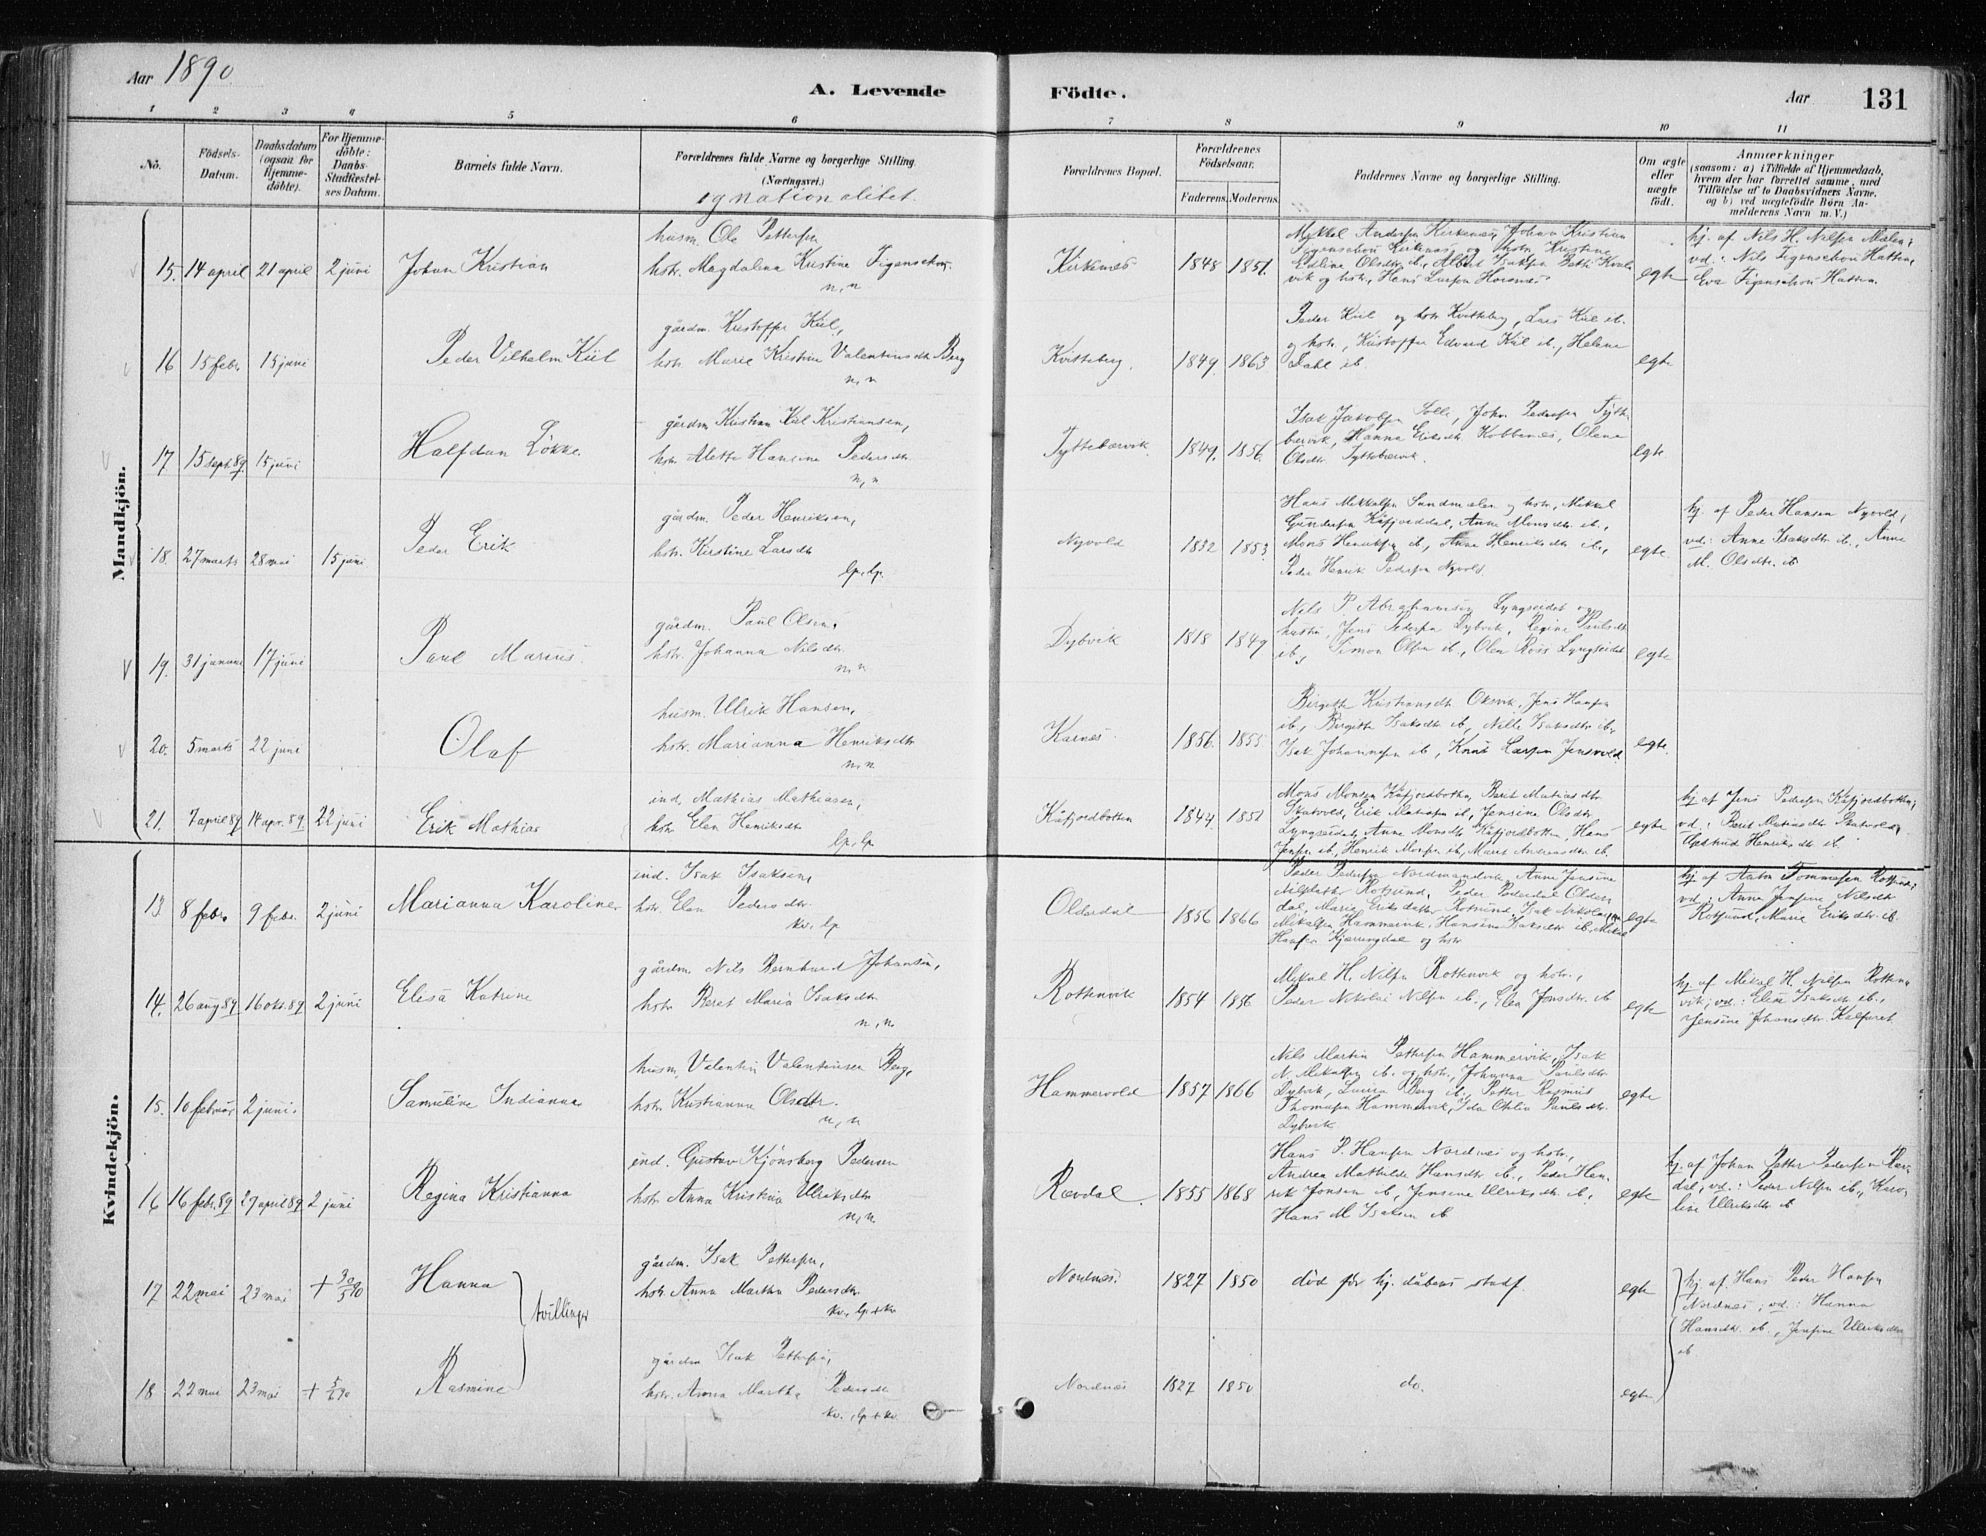 Aar 1890.
A. Levende Födte.
Aar 131
1 2 3 4 5 6 7 8 9 10 11
No.
Födsels-Datum.
Daabsdatum (ogsaa for Hjemme-döbte).
For Hjemme-döbte: Daabs-Stadfæstel-ses Datum.
Barnets fulde Navn.
Forældrenes fulde Navne og borgerlige Stilling. (Næringsvei.)
og nationalitet.
Forældrenes Bopæl.
Forældrenes Födselsaar.
Faderens. Moderens.
Faddernes Navne og borgerlige Stilling.
Om ægte eller uægte födt.
Anmærkninger
(saasom: a) i Tilfælde af Hjemmedaab,
hvem der har forrettet samme, med
Tilföielse af to Daabsvidners Navne,
og b) ved uægtefödte Börn An-
melderens Navn m. V.)
Mandkjön.
15. 14 april 21 april 2 juni
Johan Kristian
husm. Ole Pettersen
hstr. Magdalena Kristine Figenschou.
n, n
Kirkenes
1848 1851.
Mikkel Andersen Kirkenes, Johan Kristian
Figenschou Kirknæs og hstr. Kristine
Edline Olsdtr. ib., Albert Isaksen
vik og hstr., Hans Larsen Horsnes
egte
hj. af Nils H. Nilsen Mælen;
vd.: Nils Figenschou Hatten,
Eva Figenschou Hatten.
16 15 febr. 15 juni
Peder Vilhelm Kiil
gårdm. Kristoffer Kiil,
hstr. Marie Kristine Valentinsdtr Berg
n, n
Kvitteberg.
1849. 1863
Peder Kiil og hstr. Kvitteberg, Lars Kiil ib.
og hstr., Kristoffer Edvard Kiil ib., Helene
Dahl ib.
egte
17 15 sept. 89 15 juni
Halfdan Løkke.
gårdm Kristian Kiil Kristiansen,
hstr. Alette Hansine Pedersdtr
n, n
Tyttebærvik.
1849. 1856.
Isak Jakobsen Solli, Johan Pedersen Tytte
bærvik, Hanna Eriksdtr. Kobbenes, Olena
Olsdtr. Tyttebærvik.
egte
18. 27 marts 28 mai 15 juni
Peder Erik
gårdm. Peder Henriksen,
hstr. Kirstine Larsdtr
lp, lp.
Nyvold
1832 1853.
Hans Mikkelsen Sandmælen og hstr., Mikkel
Gundersen Kåfjorddal, Anne Monsdtr. ib.,
Mons Henriksen ib, Anne Henriksdtr. ib.,
Peder Henrik Pedersen Nyvold.
egte.
hj. af Peder Hansen Nyvold;
vd: Anne Isaksdtr. ib., Anne
M. Olsdtr. ib
19. 31 januar 17 juni
Paul Marius.
gårdm. Paul Olsen,
hstr. Johanna Nilsdtr.
n, n.
Dybvik
1818 1849
Nils P. Abrahamsen Lyngseidet og
hustru, Jens Pedersen Dybvik, Regine Paulsdtr
ib., Simon Olsen ib., Olea Lyngseidet
egte
20. 5 marts 22 juni
Olaf
husm. Ulrik Hansen,
hstr. Marianna Henriksdtr
n, n.
Karnes
1856. 1855
Birgitte Kristiansdtr Oksvik, Jens Hansen
ib., Birgitte Isaksdtr. ib, Nille Isaksdtr. ib.
Isak Johannesen ib, Knut Larsen Jensvold.
egte.
21. 7 april 89 14 apr. 89. 22 juni
Erik Mathias
ind. Mathias Mathiasen,
hstr. Elen Henriksdtr
lp, lp
Kåfjordbotten
1844. 1851
Mons Monsen Kåfjordbotten, Berit Matiasdtr.
Skatvold, Erik Matiasen ib, Jensine Olsdtr.
Lyngseidet, Anne Monsdtr. Kåfjordbotten, Hans
Jensen ib, Henrik Monsen ib, Maret Andreasdtr. ib.
egte
hj af Jens Pedersen Kåfjordbotten;
vd.: Berit Matiasdtr. Skatvold,
Henriksdtr. ib
Kvindekjön.
13 8 febr. 9 febr. 2 juni
Marianna Karoline
ind. Isak Isaksen,
hstr. Elen Pedersdtr.
kv, lp
Olderdal
1856 1866
Peder Pedersen Nordmandvik, Anne Jensine
Nilsdatter Rotsund, Peder Pedersen Older
dal, Maria Eriksdatter Rotsund, Isak Nikolai
Mikalsen Hammervik, Hansine Isaksdtr. ib, Mikal
Hansen Kjærringdal og hstr
egte
hj. af Anton Tommesen Rotsund;
vd: Anna Jensine Nilsdtr
Rotsund, Marie Eriksdtr. ib
14. 26 aug 89 16 okt. 89 2 juni
Elisa Katrine
gårdm. Nils Bernhard Johansen,
hstr. Beret Maria Isaksdtr
n, n.
Rottenvik
1854 1856
Mikal H. Nilsen Rottenvik og hstr.,
Peder Nikolai Nilsen ib., Elen Jensdtr. ib
egte
hj. af Mikal H. Nilsen Rotten
vik; vd.: Eline Isaksdtr ib.,
Jensine Johansdtr. Kalfaret.
15. 10 februar 2 juni.
Samuline Indianna
husm. Valentin Valentinsen Berg,
hstr. Kristianna Olsdtr.
n, n
Hammervold
1857 1866
Nils Martin Pettersen Hammervik, Isak
N. Mikalsen ib. og hstr., Johanna Paulsdtr
Dybvik, Luisa Berg ib., Petter Rasmus
Thomasen Hammervik, Ida Otilia Paulsdtr.
Dybvik.
egte
16 16 febr. 89 27 april 89 2 juni
Regina Kristianna
ind. Gustav Kjønsberg Pedersen
hstr. Anna Kristina Ulriksdtr
n, n.
Rævdal
1855 1868
Hans P. Hansen Nordnes og hstr.,
Andrea Mathilde Hansdtr ib., Peder Hen
rik Jonsen ib, Jensine Ulriksdtr. ib.,
Hans M. Isaksen ib
egte
hj. af Johan Petter Pedersen Ræv
dal; vd.: Peder Nilsen ib., Karo
line Ulriksdtr ib
17 22 mai 23 mai + 30/5 90
Hanna
gårdm. Isak Pettersen,
hstr. Anna Martha Pedersdtr.
kv., lp + kv
Nordnes.
1827 1850
död før hj. dåbens stadf.
egte
hj. af Hans Peder Hansen
Nordnes; vd.: Hanna
Hansdtr. ib., Jensine Ulriksdtr
ib
tvillinger
18 22 mai 23 mai + 5/6 90
Rasmine
gårdm Isak Pettersen,
hstr. Anna Martha Pedersdtr
kv., lp + kv.
Nordnes
1827 1850
do.
egte